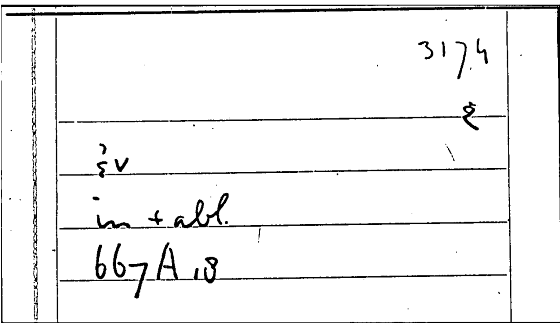 3174
ἐν
in + abl.
667A 18